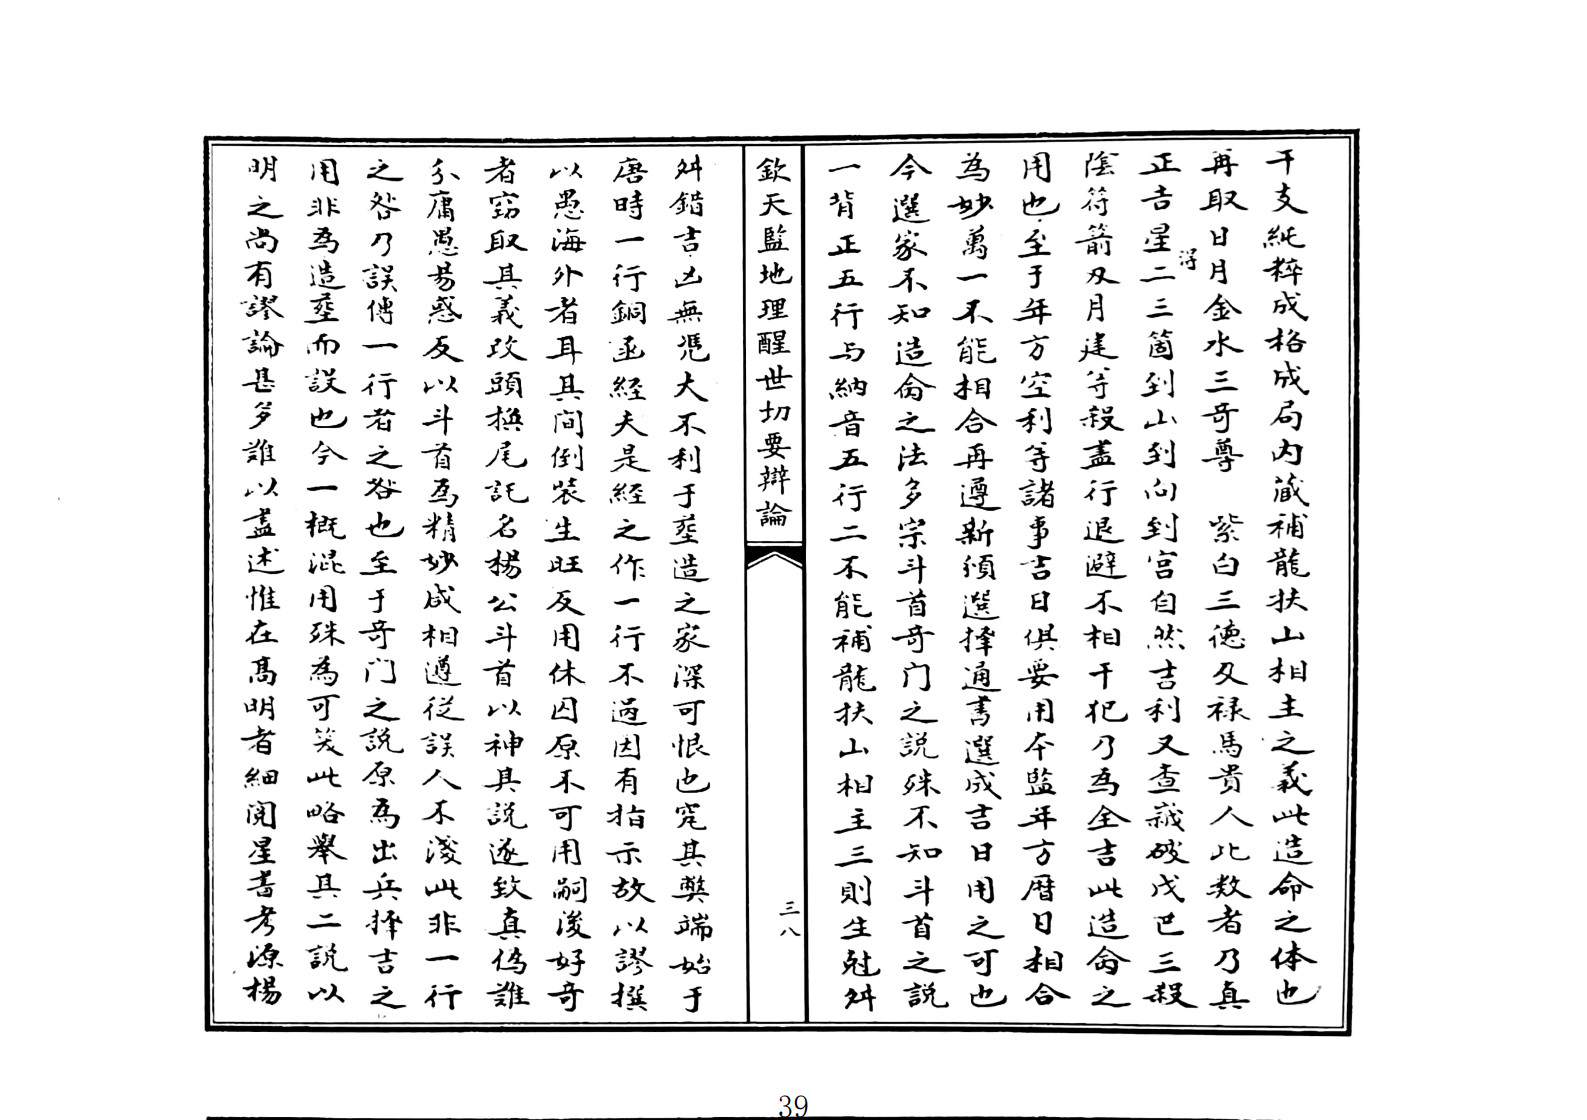 干支純粹成格成局内藏補龍扶山相主之義此造命之体也
再取日月金水三奇尊　紫白三德及禄馬貴人此数者乃真
正吉星得二三箇到山到向到宫自然吉利又查歲破戊巳三殺
陰符箭刃月建等殺盡行退避不相干犯乃為全吉此造命之
用也至于年方空利等諸事吉日俱要用本監年方曆日相合
為妙萬一不能相合再遵新頒選擇通書選成吉日用之可也
今選家不知造命之法多宗斗首奇门之説殊不知斗首之説
一背正五行与納音五行二不能補龍扶山相主三則生尅舛
欽天監地理醒世切要辯論
三八
舛錯吉凶無凴大不利于塟造之家深可恨也究其獘端始于
唐時一行銅函經夫是經之作一行不過因有指示故以謬撰
以愚海外者耳其间倒装生旺反用休囚原不可用嗣後好奇
者窃取其義改頭換尾託名楊公斗首以神其説遂致真偽誰
分庸愚易惑反以斗首為精妙咸相遵從誤人不淺此非一行
之咎乃誤傳一行者之咎也至于奇门之説原為出兵擇吉之
用非為造塟而設也今一概混用殊為可笑此略舉其二説以
明之尚有謬論甚多誰以盡述惟在髙明者細閲星書考源楊
39